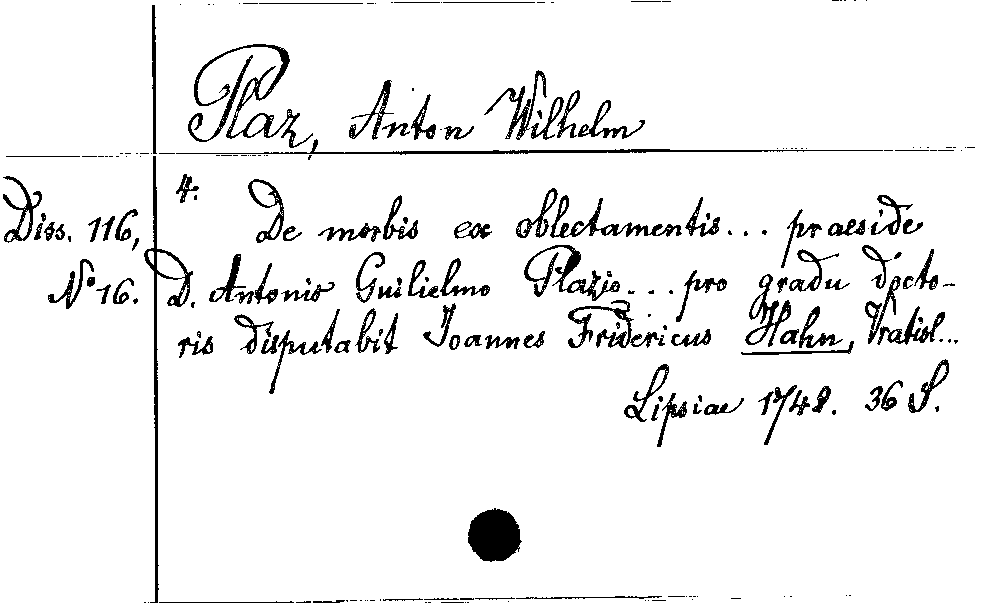 Plaz, Anton Wilhelm
4.
Diss. 116, De morbis ex oblectamentis... praeside
No 16. D. Antonio Guilielmo Plazio... pro gradu docto-
ris disputabit Joannes Fridericus Hahn, Vratisl...
Lipsiae 1748. 36 S.